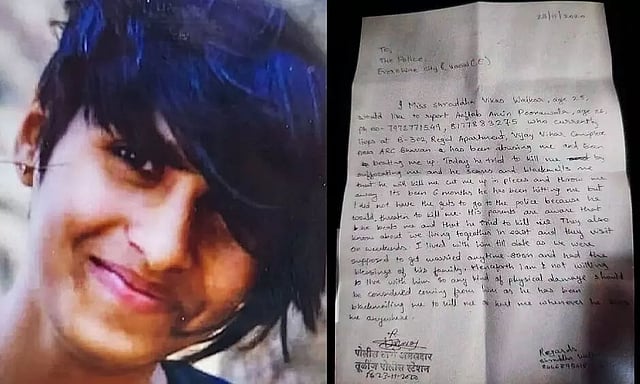 23/11/2020
To,
The Police,
I Miss Shraddha Vikas Walkar, age 25,
would like to report Aaftab Amin Poonawala, age 26,
who currently
lives at B-302, Regal Apartment, Vijay Vihar Complex
has been abusing me and been
beating me up. Today he tried to kill me by
suffocating me and he scares and blackmails me
that he will kill me cut me up in pieces and throw me
away. Its been 6 months he has been hitting me but
I did not have the guts to go to the police because he
would threaten to kill me. His parents are aware that
he beats me and that he tried to kill me. They also
know about we living together in east and they visit
on weekends. I lived with him till date as we were
supposed to get married anytime soon and had the
blessings of his family. Henceforth I am not willing
to live with him so any kind of physical damage should
be considered coming from him as he has been
blackmailing me to kill me or hurt me whenever he sees
me anywhere.
Regards
पोलीस ठाणे अंमलदार
तुळींज पोलीस स्टेशन